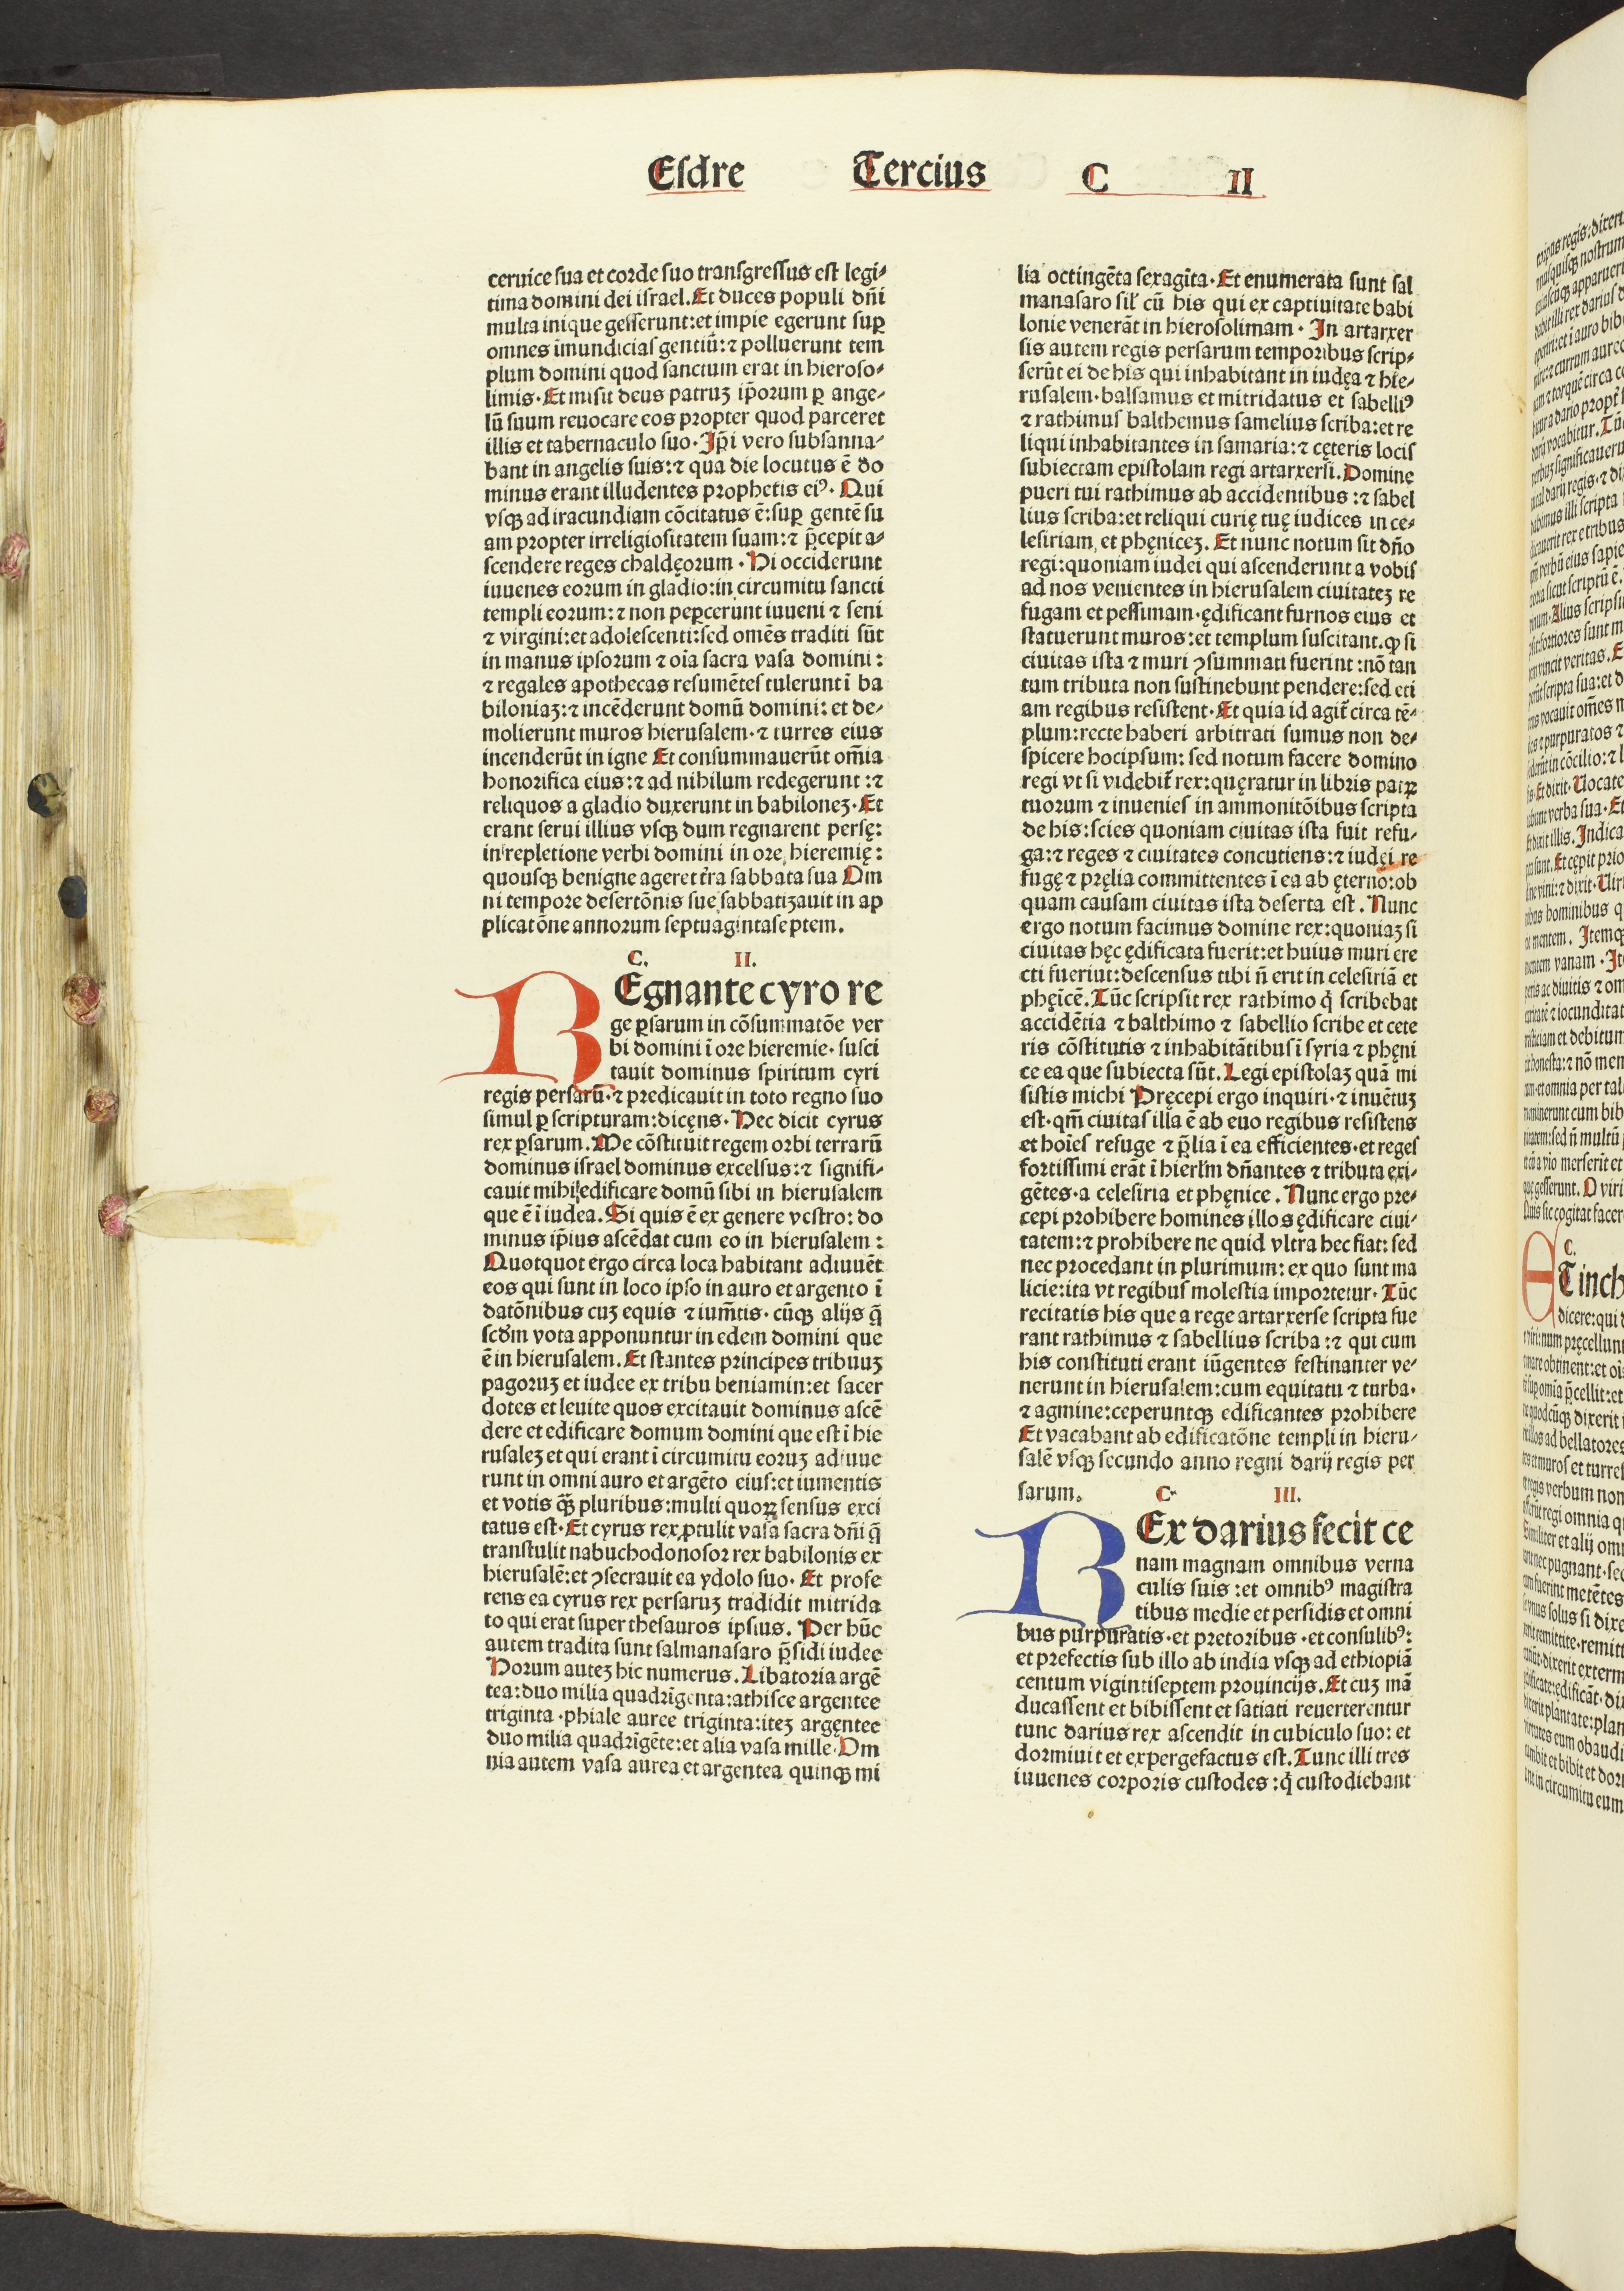 Eſdre Tercius C II
ceruice ſua et corde ſuo tranſgreſſus eſt legi⸗
tima domini dei iſrael. Et duces populi dñi
multa inique geſſerunt: et impie egerunt ſuꝑ
omnes īmundiciaſ gentiū: ⁊ polluerunt tem
plum domini quod ſanctum erat in hieroſo⸗
limis · Et miſit deus patruꝫ ip̄orum ꝑ ange⸗
lū ſuum reuocare eos propter quod parceret
illis et tabernaculo ſuo · Ip̄i vero ſubſanna⸗
bant in angelis ſuis: ⁊ qua die locutus ē do
minus erant illudentes prophetis eiꝰ · Qui
vſqꝫ ad iracundiam cōcitatus ē: ſuꝑ gentē ſu
am propter irreligioſitatem ſuam: ⁊ p̄cepit a⸗
ſcendere reges chaldęorum · Hi occiderunt
iuuenes eorum in gladio: in circumitu ſancti
templi eorum: ⁊ non peꝑcerunt iuueni ⁊ ſeni
⁊ virgini: et adoleſcenti: ſed omēs traditi ſūt
in manus ipſorum ⁊ oīa ſacra vaſa domini :
⁊ regales apothecas reſumēteſ tulerunt ī ba
biloniaꝫ: ⁊ incēderunt domū domini: et de⸗
molierunt muros hieruſalem · ⁊ turres eius
incenderūt in igne Et conſummauerūt om̄ia
honorifica eius: ⁊ ad nihilum redegerunt : ⁊
reliquos a gladio duxerunt in babiloneꝫ · Et
erant ſerui illius vſqꝫ dum regnarent perſę:
in repletione verbi domini in ore hieremię :
quouſqꝫ benigne ageret t̄ra ſabbata ſua Om
ni tempore deſertōnis ſue ſabbatiꝫauit in ap
plicatōne annorum ſeptuagintaſeptem.
C. II.
REgnante cyro re
ge ꝑſarum in cōſummatōe ver
bi domini ī ore hieremie · ſuſci
tauit dominus ſpiritum cyri
regis perſarū · ⁊ predicauit in toto regno ſuo
ſimul ꝑ ſcripturam: dicęns · Hec dicit cyrus
rex ꝑſarum. Me cōſtituit regem orbi terrarū
dominus iſrael dominus excelſus: ⁊ ſignifi⸗
cauit mihi edificare domū ſibi in hieruſalem
que ē ī iudea. Si quis ē ex genere veſtro: do
minus ip̄ius aſcēdat cum eo in hieruſalem :
Quotquot ergo circa loca habitant adiuuēt
eos qui ſunt in loco ipſo in auro et argento ī
datōnibus cuꝫ equis ⁊ ium̄tis · cūqꝫ alijs q̄
ſcd̄m vota apponuntur in edem domini que
ē in hieruſalem. Et ſtantes principes tribuuꝫ
pagoruꝫ et iudee ex tribu beniamin: et ſacer
dotes et leuite quos excitauit dominus aſcē
dere et edificare domum domini que eſt ī hie
ruſaleꝫ et qui erant ī circumitu eoruꝫ adiuue
runt in omni auro et argēto eiuſ: et iumentis
et votis qꝫ̄ pluribus: multi quoꝝ ſenſus exci
tatus eſt · Et cyrus rex ꝓtulit vaſa ſacra dñi q̄
tranſtulit nabuchodonoſor rex babilonis ex
hieruſalē: et ꝯſecrauit ea ydolo ſuo · Et profe
rens ea cyrus rex perſaruꝫ tradidit mitrida
to qui erat ſuper theſauros ipſius. Per hūc
autem tradita ſunt ſalmanaſaro p̄ſidi iudee
Horum auteꝫ hic numerus. Libatoria argē
tea: duo milia quadrīgenta: athiſce argentee
triginta · phiale auree triginta: iteꝫ argęntee
duo milia quadrīgēte: et alia vaſa mille · Om
nia autem vaſa aurea et argentea quinqꝫ mi
lia octingēta ſexagīta · Et enumerata ſunt ſal
manaſaro ſil' cū his qui ex captiuitate babi
lonie venerāt in hieroſolimam · In artaxer
ſis autem regis perſarum temporibus ſcrip⸗
ſerūt ei de his qui inhabitant in iudęa ⁊ hie⸗
ruſalem · balſamus et mitridatus et ſabelliꝰ
⁊ rathimuſ balthemus ſamelius ſcriba: et re
liqui inhabitantes in ſamaria: ⁊ cęteris lociſ
ſubiectam epiſtolam regi artarxerſi. Domine
pueri tui rathimus ab accidentibus : ⁊ ſabel
lius ſcriba: et reliqui curię tuę iudices in ce⸗
leſiriam et phęniceꝫ. Et nunc notum ſit dño
regi: quoniam iudei qui aſcenderunt a vobiſ
ad nos venientes in hieruſalem ciuitateꝫ re
fugam et peſſimam · ędificant furnos eius et
ſtatuerunt muros: et templum ſuſcitant. ꝙ ſi
ciuitas iſta ⁊ muri ꝯſummati fuerint : nō tan
tum tributa non ſuſtinebunt pendere: ſed eti
am regibus reſiſtent · Et quia id agit̄ circa tē⸗
plum: recte haberi arbitrati ſumus non de⸗
ſpicere hocipſum: ſed notum facere domino
regi vt ſi videbit̄ rex: quęratur in libris patꝝ
tuorum ⁊ inuenieſ in ammonitōibus ſcripta
de his: ſcies quoniam ciuitas iſta fuit refu⸗
ga: ⁊ reges ⁊ ciuitates concutiens: ⁊ iudęi re
fugę ⁊ pręlia committentes ī ea ab ęterno: ob
quam cauſam ciuitas iſta deſerta eſt. Nunc
ergo notum facimus domine rex: quoniaꝫ ſi
ciuitas hęc ędificata fuerit: et huius muri ere
cti fueriut: deſcenſus tibi ñ erit in celeſiriā et
phęicē. Tūc ſcripſit rex rathimo q̇ ſcribebat
accidētia ⁊ balthimo ⁊ ſabellio ſcribe et cete
ris cōſtitutis ⁊ inhabitātibuſ ī ſyria ⁊ phęni
ce ea que ſubiecta ſūt. Legi epiſtolaꝫ quā mi
ſiſtis michi Pręcepi ergo inquiri · ⁊ inuētuꝫ
eſt · qm̄ ciuitas illa ē ab euo regibus reſiſtens
et hoīeſ refuge ⁊ p̄lia ī ea efficientes · et regeſ
fortiſſimi erāt ī hierl'm dñantes ⁊ tributa exi⸗
gētes · a celeſiria et phęnice. Nunc ergo pre⸗
cepi prohibere homines illos ędificare ciui⸗
tatem: ⁊ prohibere ne quid vltra hec fiat: ſed
nec procedant in plurimum: ex quo ſunt ma
licie: ita vt regibus moleſtia importetur · Tūc
recitatis his que a rege artarxerſe ſcripta fue
rant rathimus ⁊ ſabellius ſcriba : ⁊ qui cum
his conſtituti erant iūgentes feſtinanter ve⸗
nerunt in hieruſalem: cum equitatu ⁊ turba ·
⁊ agmine: ceperuntqꝫ edificantes prohibere
Et vacabant ab edificatōne templi in hieru⸗
ſalē vſqꝫ ſecundo anno regni darij regis per
ſarum. C· III.
REx darius fecit ce
nam magnam omnibus verna
culis ſuis : et omnibꝰ magiſtra
tibus medie et perſidis et omni
bus purpuratis · et pretoribus · et conſulibꝰ:
et prefectis ſub illo ab india vſqꝫ ad ethiopiā
centum vigintiſeptem prouincijs. Et cuꝫ mā
ducaſſent et bibiſſent et ſatiati reuerterentur
tunc darius rex aſcendit in cubiculo ſuo: et
dormiuit et expergefactus eſt. Tunc illi tres
iuuenes corporis cuſtodes : q̇ cuſtodiebant